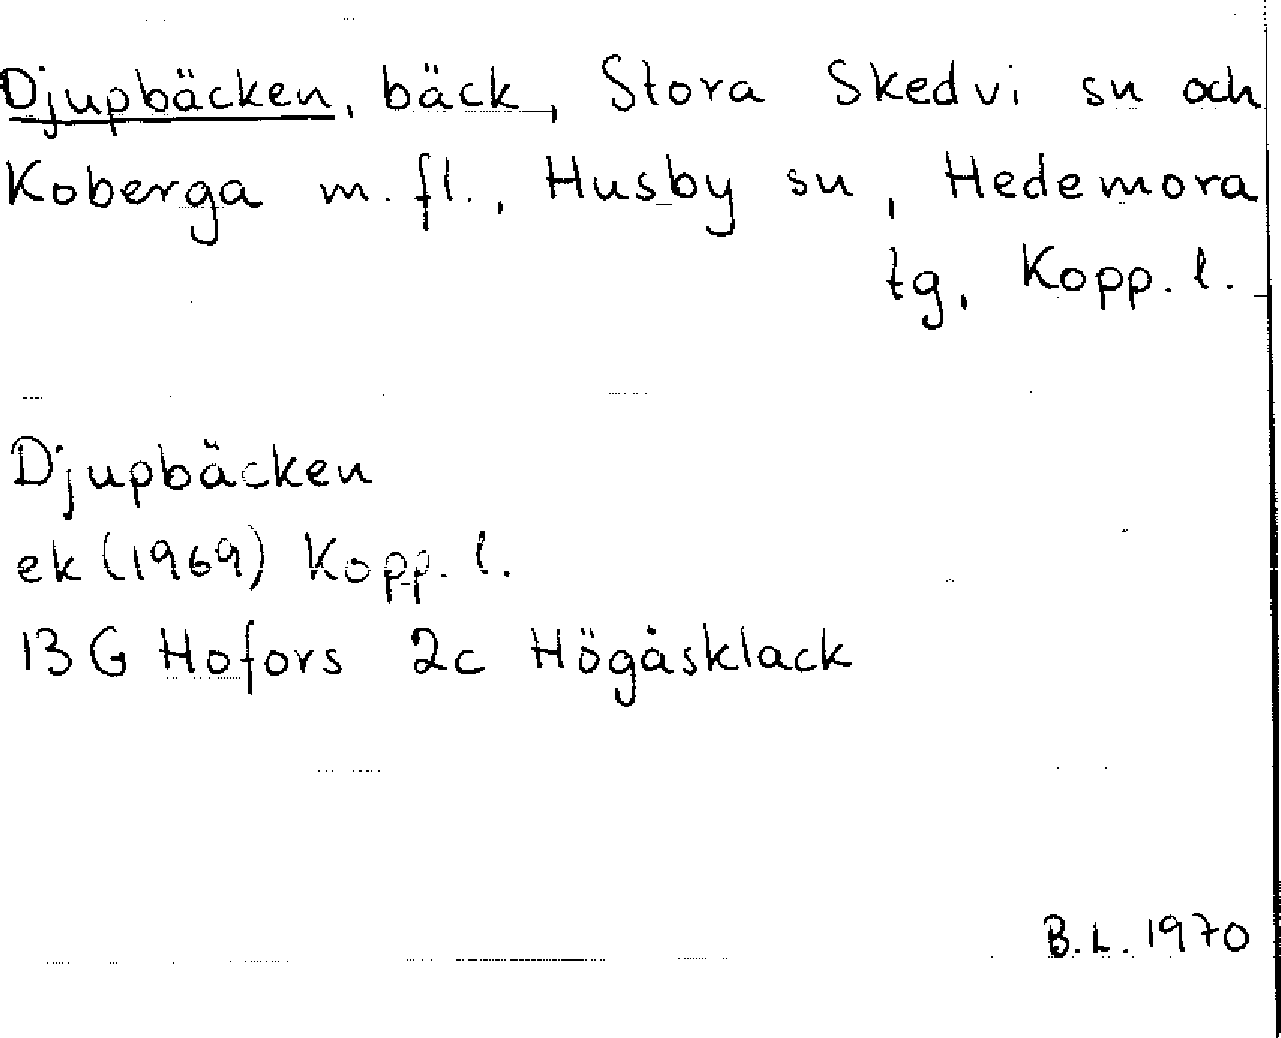 Djupbäcken, bäck, Stora Skedvi sn och
Koberga m. fl., Husby sn, Hedemora
tg, Kopp. l.
Djupbäcken
ek (1969) Kopp. l.
13 G Hofors 2c Högåsklack
B.L. 1970